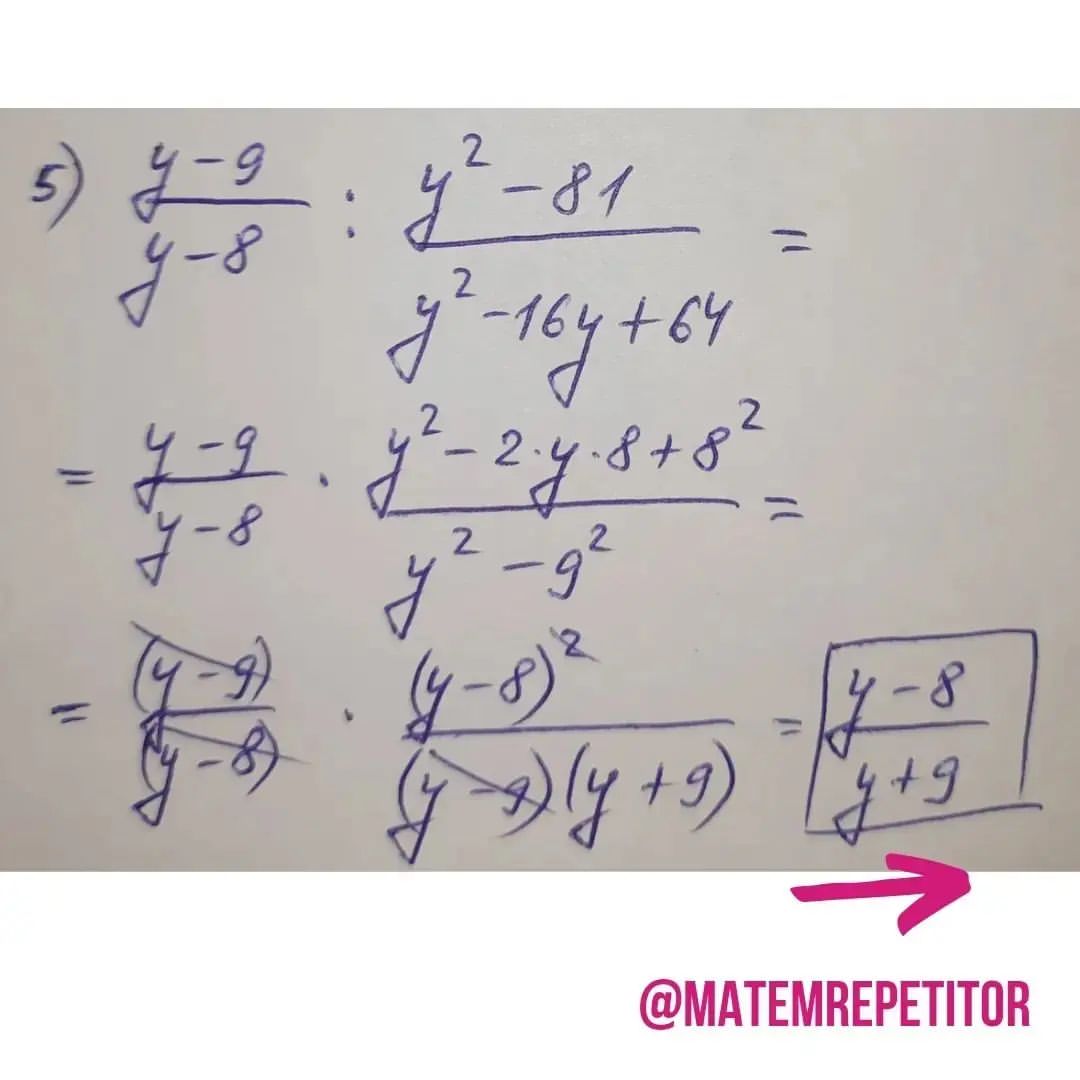 5) (y-9)/(y-8) : (y²-81)/(y²-16y+64) =
= (y-9)/(y-8) · (y²-2·y·8+8²)/(y²-9²) =
= (y-9)/(y-8) · (y-8)²/((y-9)(y+9)) = (y-8)/(y+9)
@MATEMREPETITOR